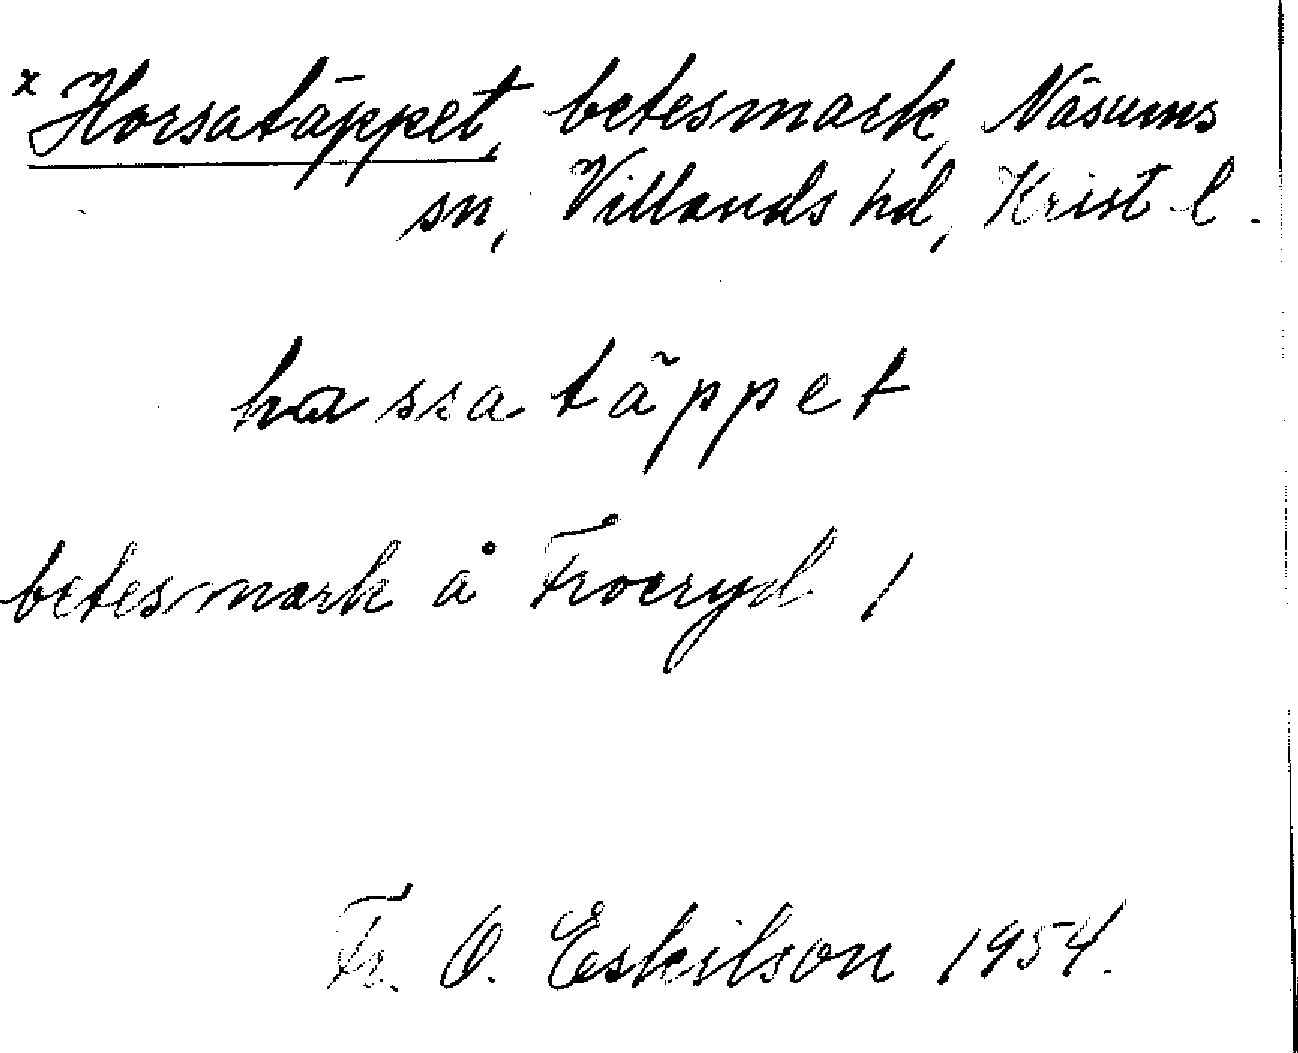 x Horsatäppet, betesmark, Näsums
sn, Villands hd, Krist l.
hassatäppet
betesmark å Froeryd 1
Fr. O. Eskilson 1954.